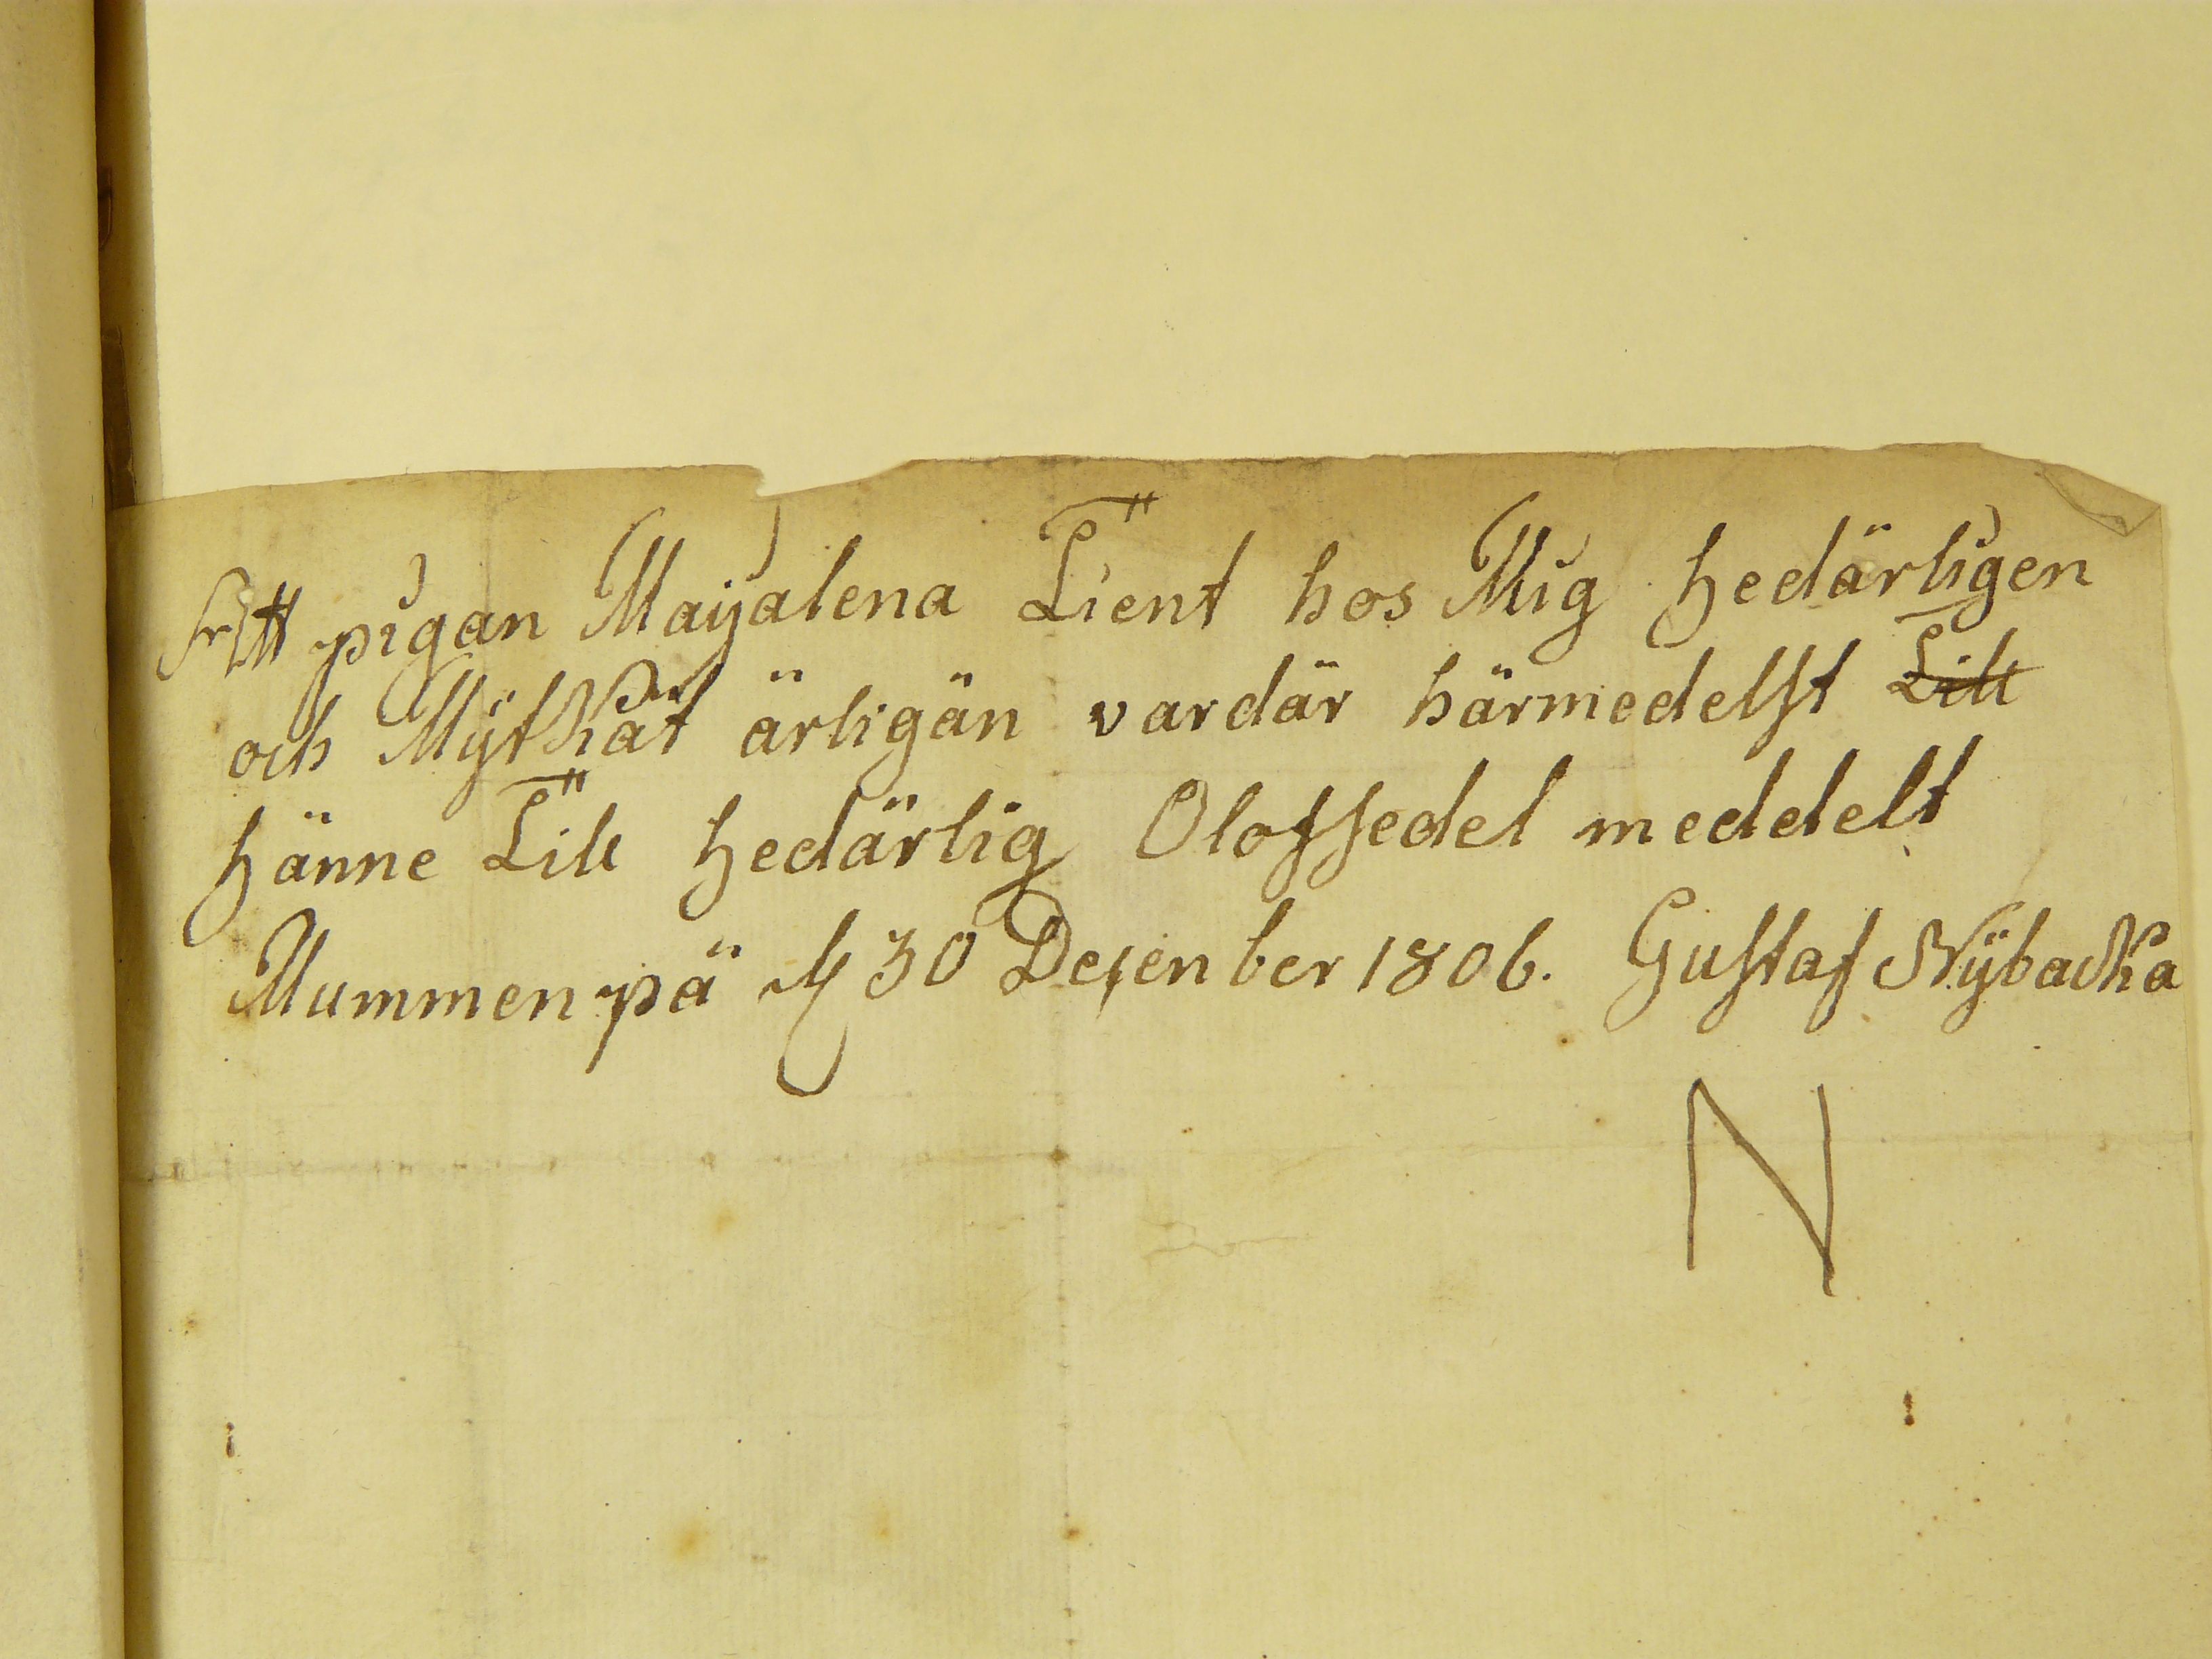 pigan Maijalena Tient hos Mig hedärligen
och Mÿtkät ärligän vardär härmedelst Till
hänne Till hedärlig Oloffsedel meddelt
Mummen pä 30 Desenber 1806. Gustaf Nÿbacka
N